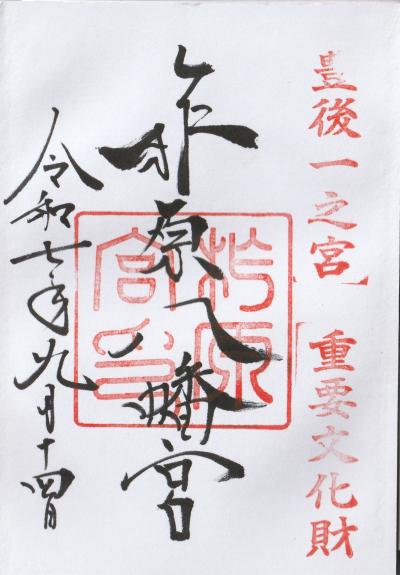 豊後一之宮 重要文化財
柞原八幡宮
柞原宮印
令和七年九月十四日